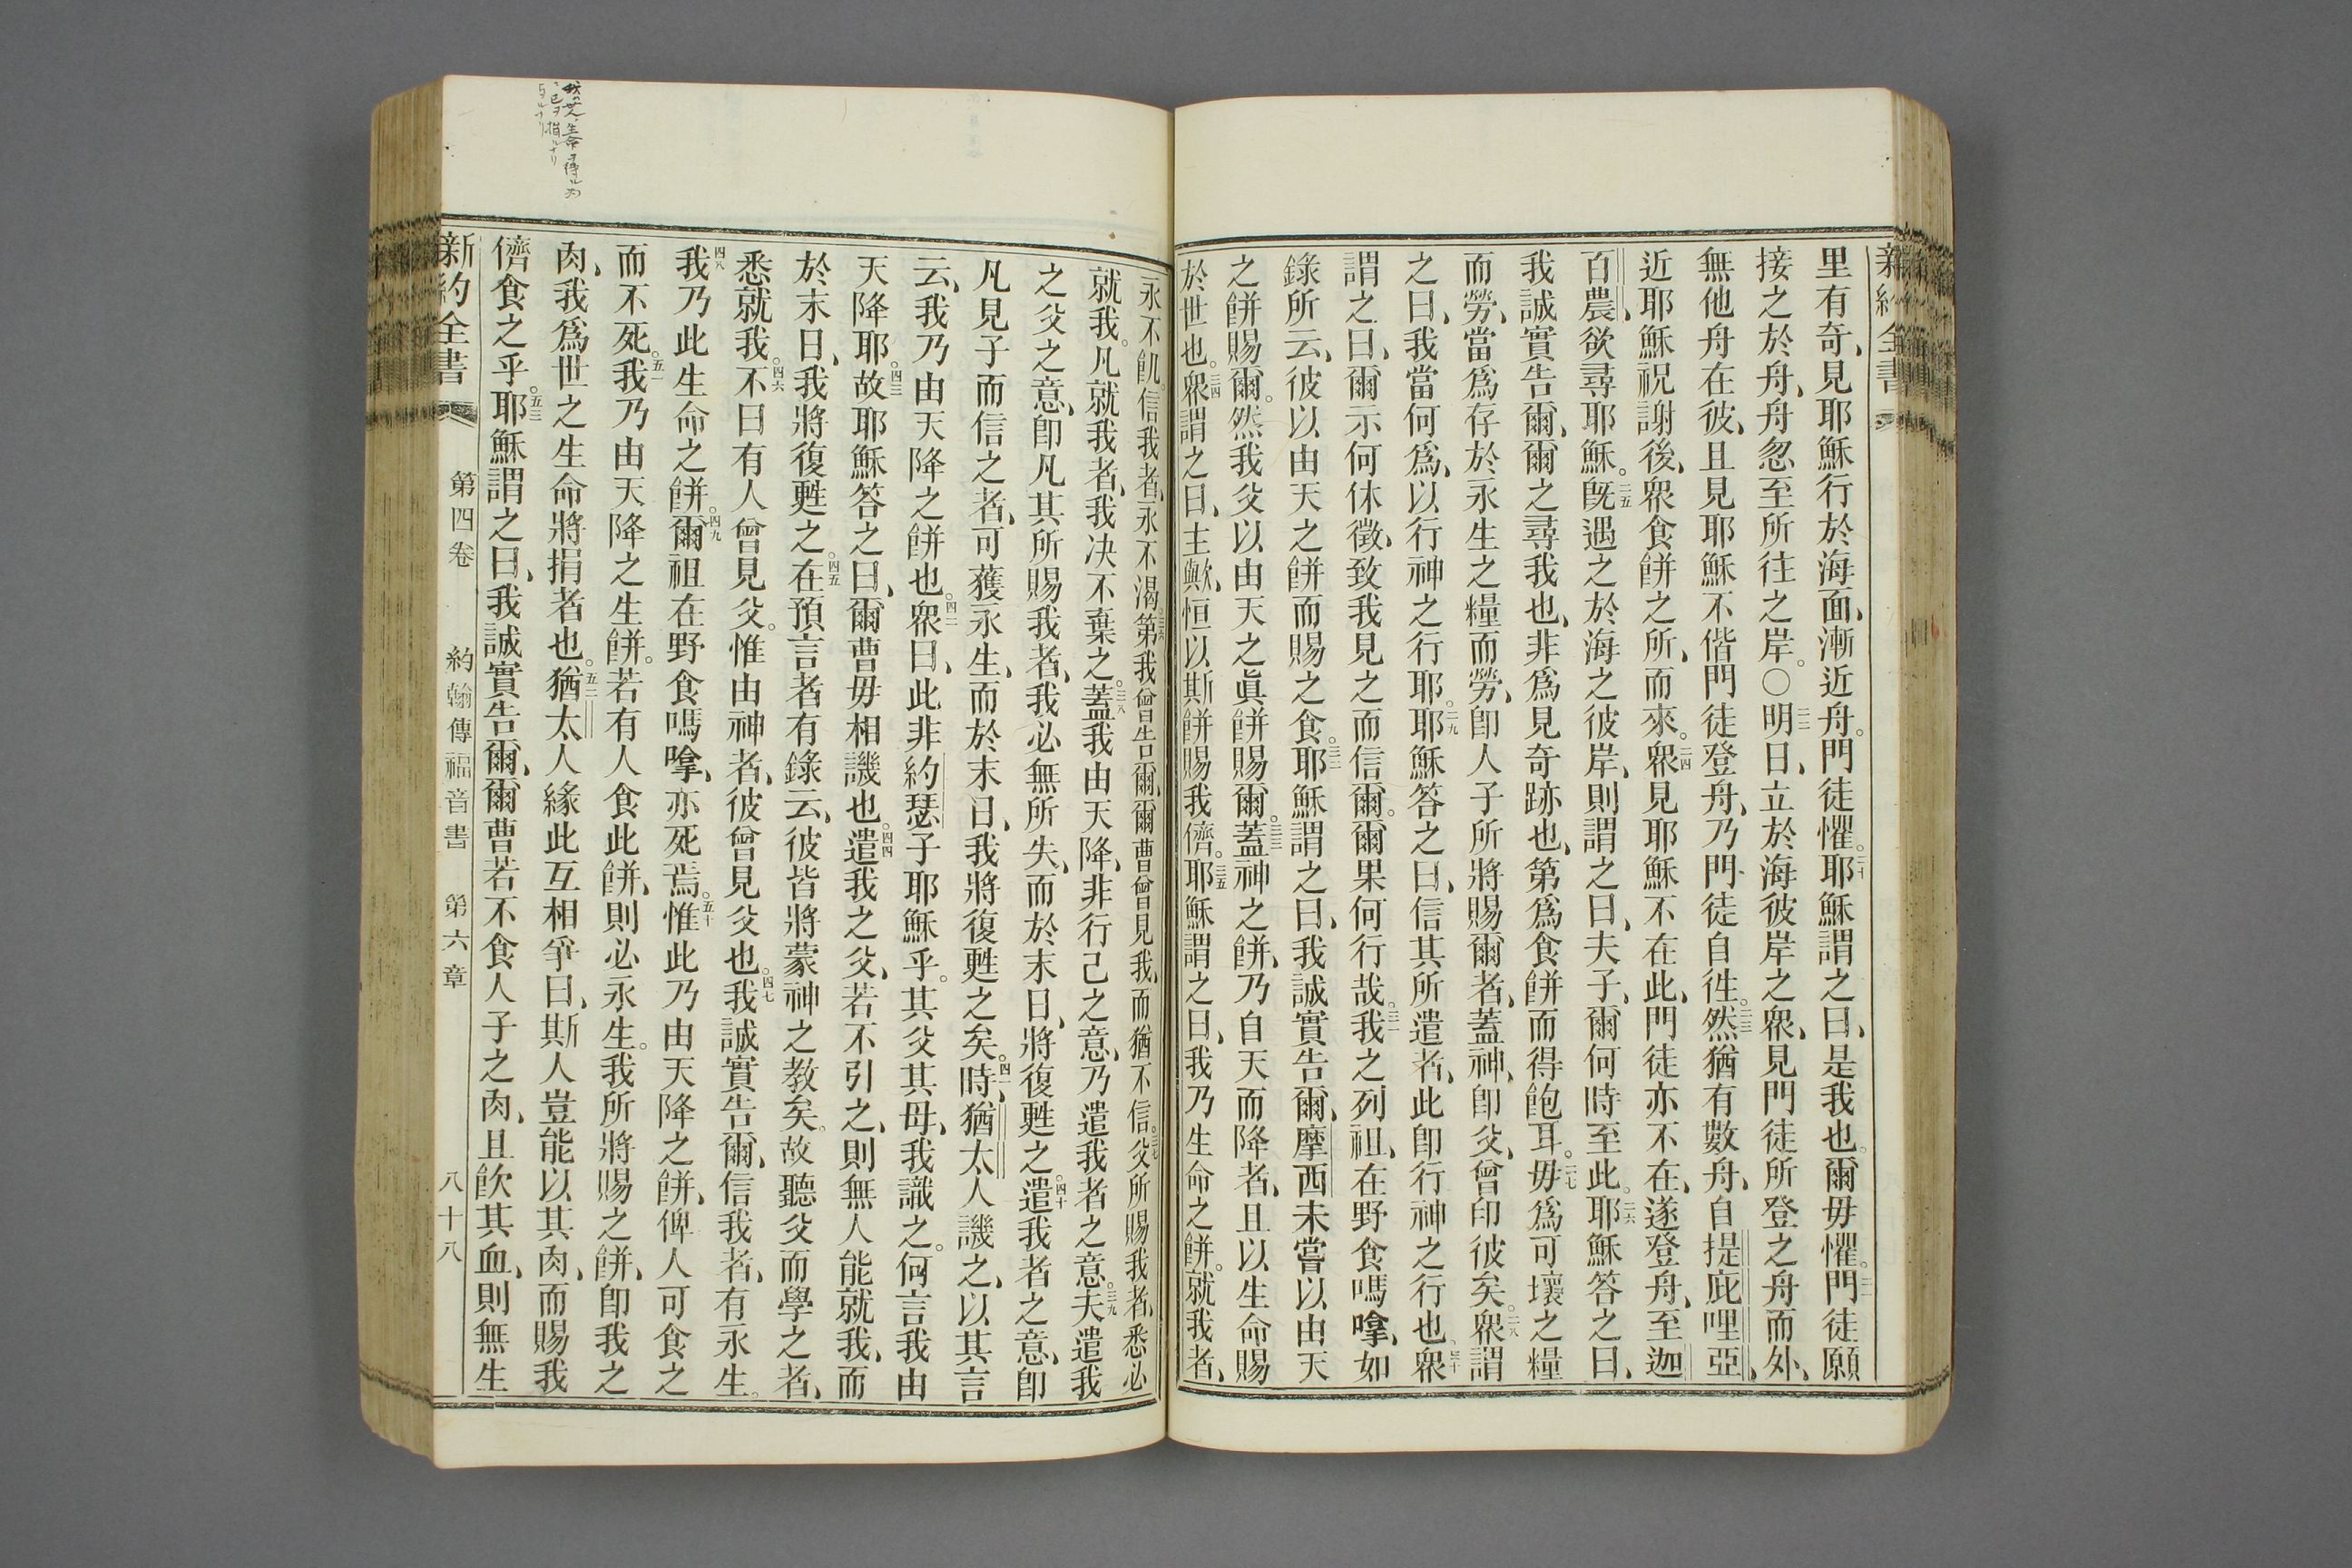 新約全書
里有奇、見耶穌行於海面、漸近舟。門徒懼。二十耶穌謂之曰、是我也。爾毋懼。二一門徒願
接之於舟、舟忽至所往之岸。〇二二明日、立於海彼岸之衆、見門徒所登之舟而外、
無他舟在彼、且見耶穌不偕門徒登舟、乃門徒自徃。二三然猶有數舟、自提庇哩亞、
近耶穌祝謝後、衆食餠之所、而來。二四衆見耶穌不在此、門徒亦不在、遂登舟、至迦
百農、欲尋耶穌。二五旣遇之於海之彼岸、則謂之曰、夫子、爾何時至此。二六耶穌答之曰、
我誠實告爾、爾之尋我也、非爲見奇跡也、第爲食餠而得飽耳。二七毋爲可壞之糧
而勞、當爲存於永生之糧而勞、卽人子所將賜爾者、蓋神、卽父、曾印彼矣。二八衆謂
之曰、我當何爲、以行神之行耶。二九耶穌答之曰、信其所遣者、此卽行神之行也。三十衆
謂之曰、爾示何休徵、致我見之而信爾。爾果何行哉。三一我之列祖、在野食嗎嗱、如
錄所云、彼以由天之餠而賜之食。三二耶穌謂之曰、我誠實告爾、摩西未嘗以由天
之餠賜爾。然我父以由天之眞餠賜爾。三三蓋神之餠、乃自天而降者、且以生命賜
於世也。三四衆謂之曰、主歟、恒以斯餠賜我儕。三五耶穌謂之曰、我乃生命之餠。就我者、
永不飢。信我者、永不渴。三六第我曾告爾、爾曹曾見我、而猶不信。三七父所賜我者、悉必
就我。凡就我者、我决不棄之。三八蓋我由天降、非行己之意、乃遣我者之意。三九夫遣我
之父之意、卽凡其所賜我者、我必無所失、而於末日、將復甦之。四十遣我者之意、卽
凡見子而信之者、可獲永生、而於末日、我將復甦之矣。四一時、猶太人譏之、以其言
云、我乃由天降之餠也。四二衆曰、此非約瑟子耶穌乎。其父其母、我識之。何言我由
天降耶。四三故耶穌答之曰、爾曹毋相譏也。四四遣我之父、若不引之、則無人能就我、而
於末日、我將復甦之。四五在預言者有錄云、彼皆將蒙神之教矣。故聽父而學之者、
悉就我。四六不曰有人曾見父。惟由神者、彼曾見父也。四七我誠實告爾、信我者、有永生。
四八我乃此生命之餠。四九爾祖在野食嗎嗱、亦死焉。五十惟此乃由天降之餠、俾人可食之
而不死。五一我乃由天降之生餠。若有人食此餠、則必永生。我所將賜之餠、卽我之
肉、我爲世之生命將捐者也。五二猶太人緣此互相爭曰、斯人豈能以其肉、而賜我
儕食之乎。五三耶穌謂之曰、我誠實告爾、爾曹若不食人子之肉、且飮其血、則無生
新約全書 第四卷 約翰傳福音書 第六章 八十八